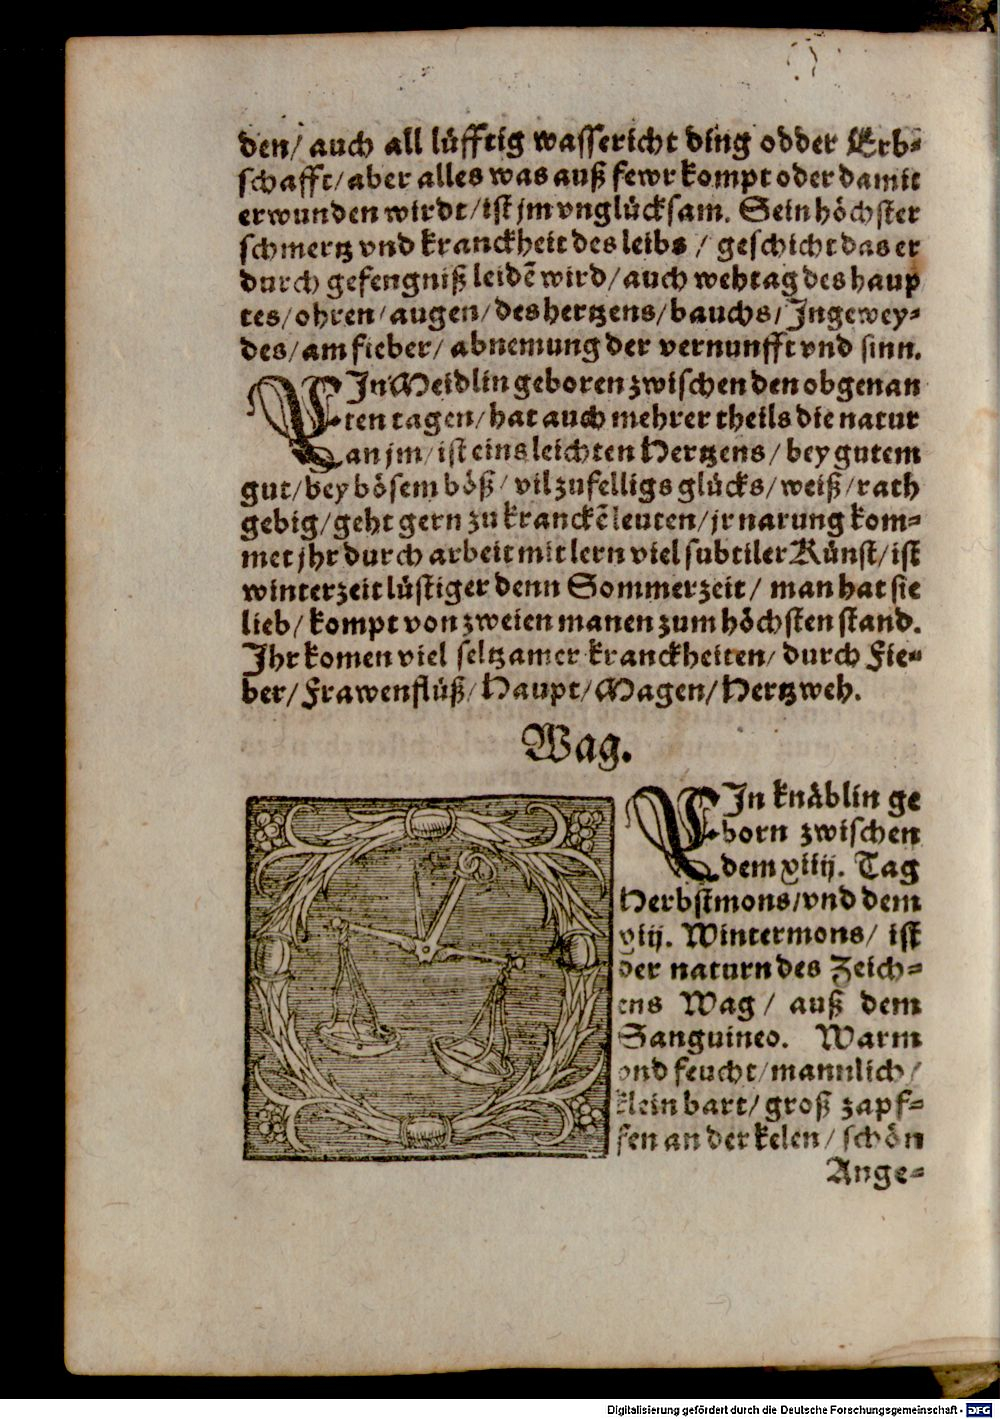 den/ auch all lüfftig wassericht ding odder Erb-
schafft/ aber alles was auß fewr kompt oder damit
erwunden wirdt/ ist jm vnglücksam. Sein höchster
schmertz vnd kranckheit des leibs / geschicht das er
durch gefengniß leidẽ wird/ auch wehtag des haup
tes/ ohren/ augen/ des hertzens/ bauchs/ Ingewey-
des/ am fieber/ abnemung der vernunfft vnd sinn.
EIn Meidlin geboren zwischen den obgenan
ten tagen/ hat auch mehrer theils die natur
an jm/ ist eins leichten Hertzens/ bey gutem
gut/ bey bösem böß/ vil zufelligs glücks/ weiß/ rath
gebig/ geht gern zu kranckẽ leuten/ jr narung kom-
met jhr durch arbeit mit lern viel subtiler Künst/ ist
winterzeit lüstiger denn Sommerzeit/ man hat sie
lieb/ kompt von zweien manen zum höchsten stand.
Ihr komen viel seltzamer kranckheiten/ durch Fie-
ber/ Frawenflüß/ Haupt/ Magen/ Hertzweh.
Wag.
EIn knäblin ge
born zwischen
dem xiiij. Tag
Herbstmons/ vnd dem
xiij. Wintermons/ ist
der naturn des Zeich-
ens Wag/ auß dem
Sanguineo. Warm
vnd feucht/ mannlich/
klein bart/ groß zapf-
fen an der kelen/ schön
Ange-
Digitalisierung gefördert durch die Deutsche Forschungsgemeinschaft - DFG